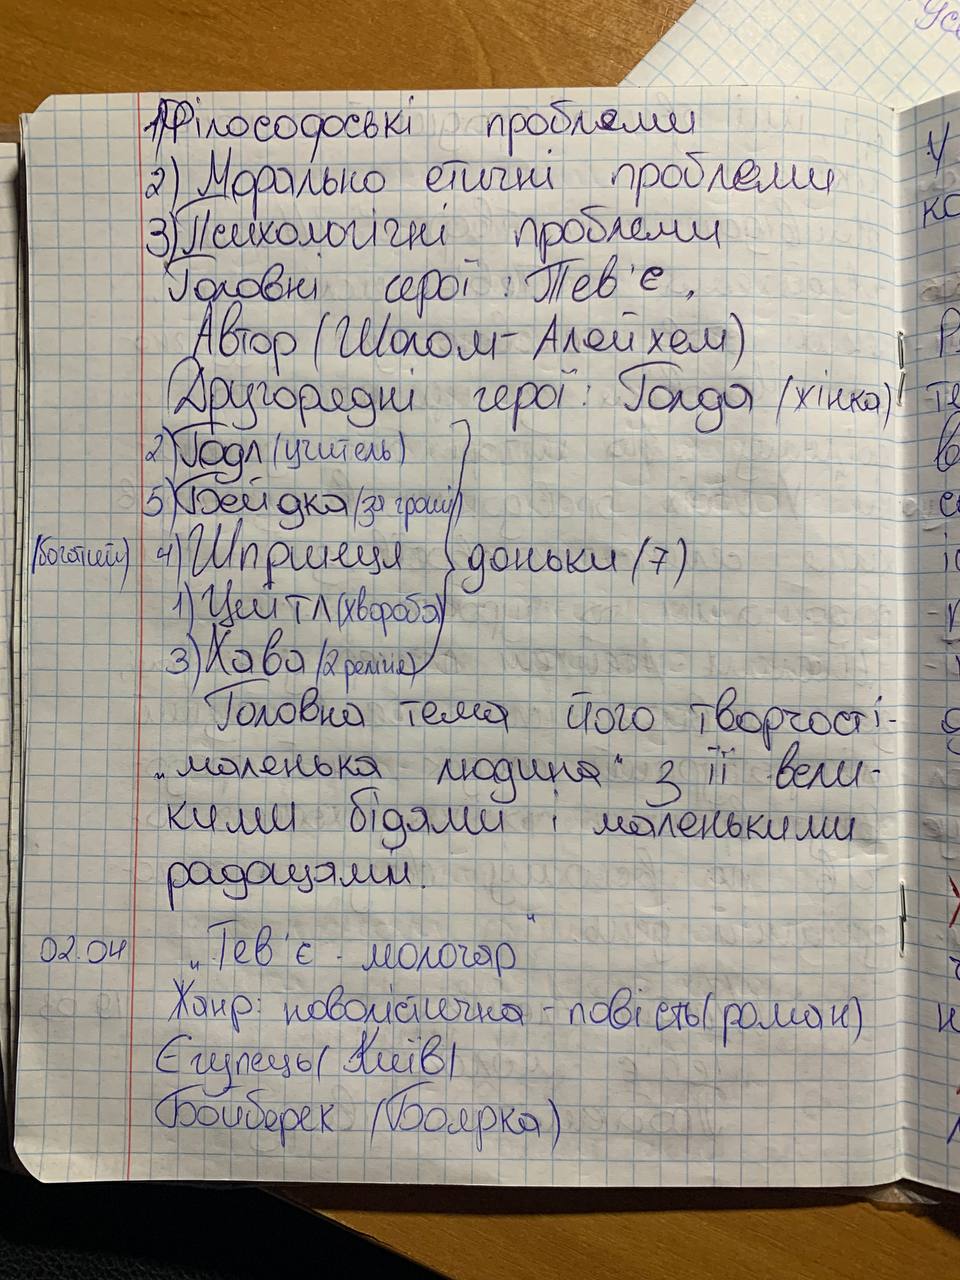 1) Філософські проблеми
2) Морально етичні проблеми
3) Психологічні проблеми
Головні серої: Тев'є,
Автор (Шолом-Алейхем)
Другорядні герої: Голда (жінка)
2) Годл (учитель)
5) Бейдка (за гроші)
(богатий) 4) Шпринця } доньки (7)
1) Цейтл (хвороба)
3) Хава (2 релігія)
Головна тема його творчості -
„маленька людина" з її вели-
кими бідями і маленькими
радощами.
02.04 „Тев'є - молочар"
Жанр: новолістична - повість (роман)
Єгупець (Київ)
Бойберек (Боярка)